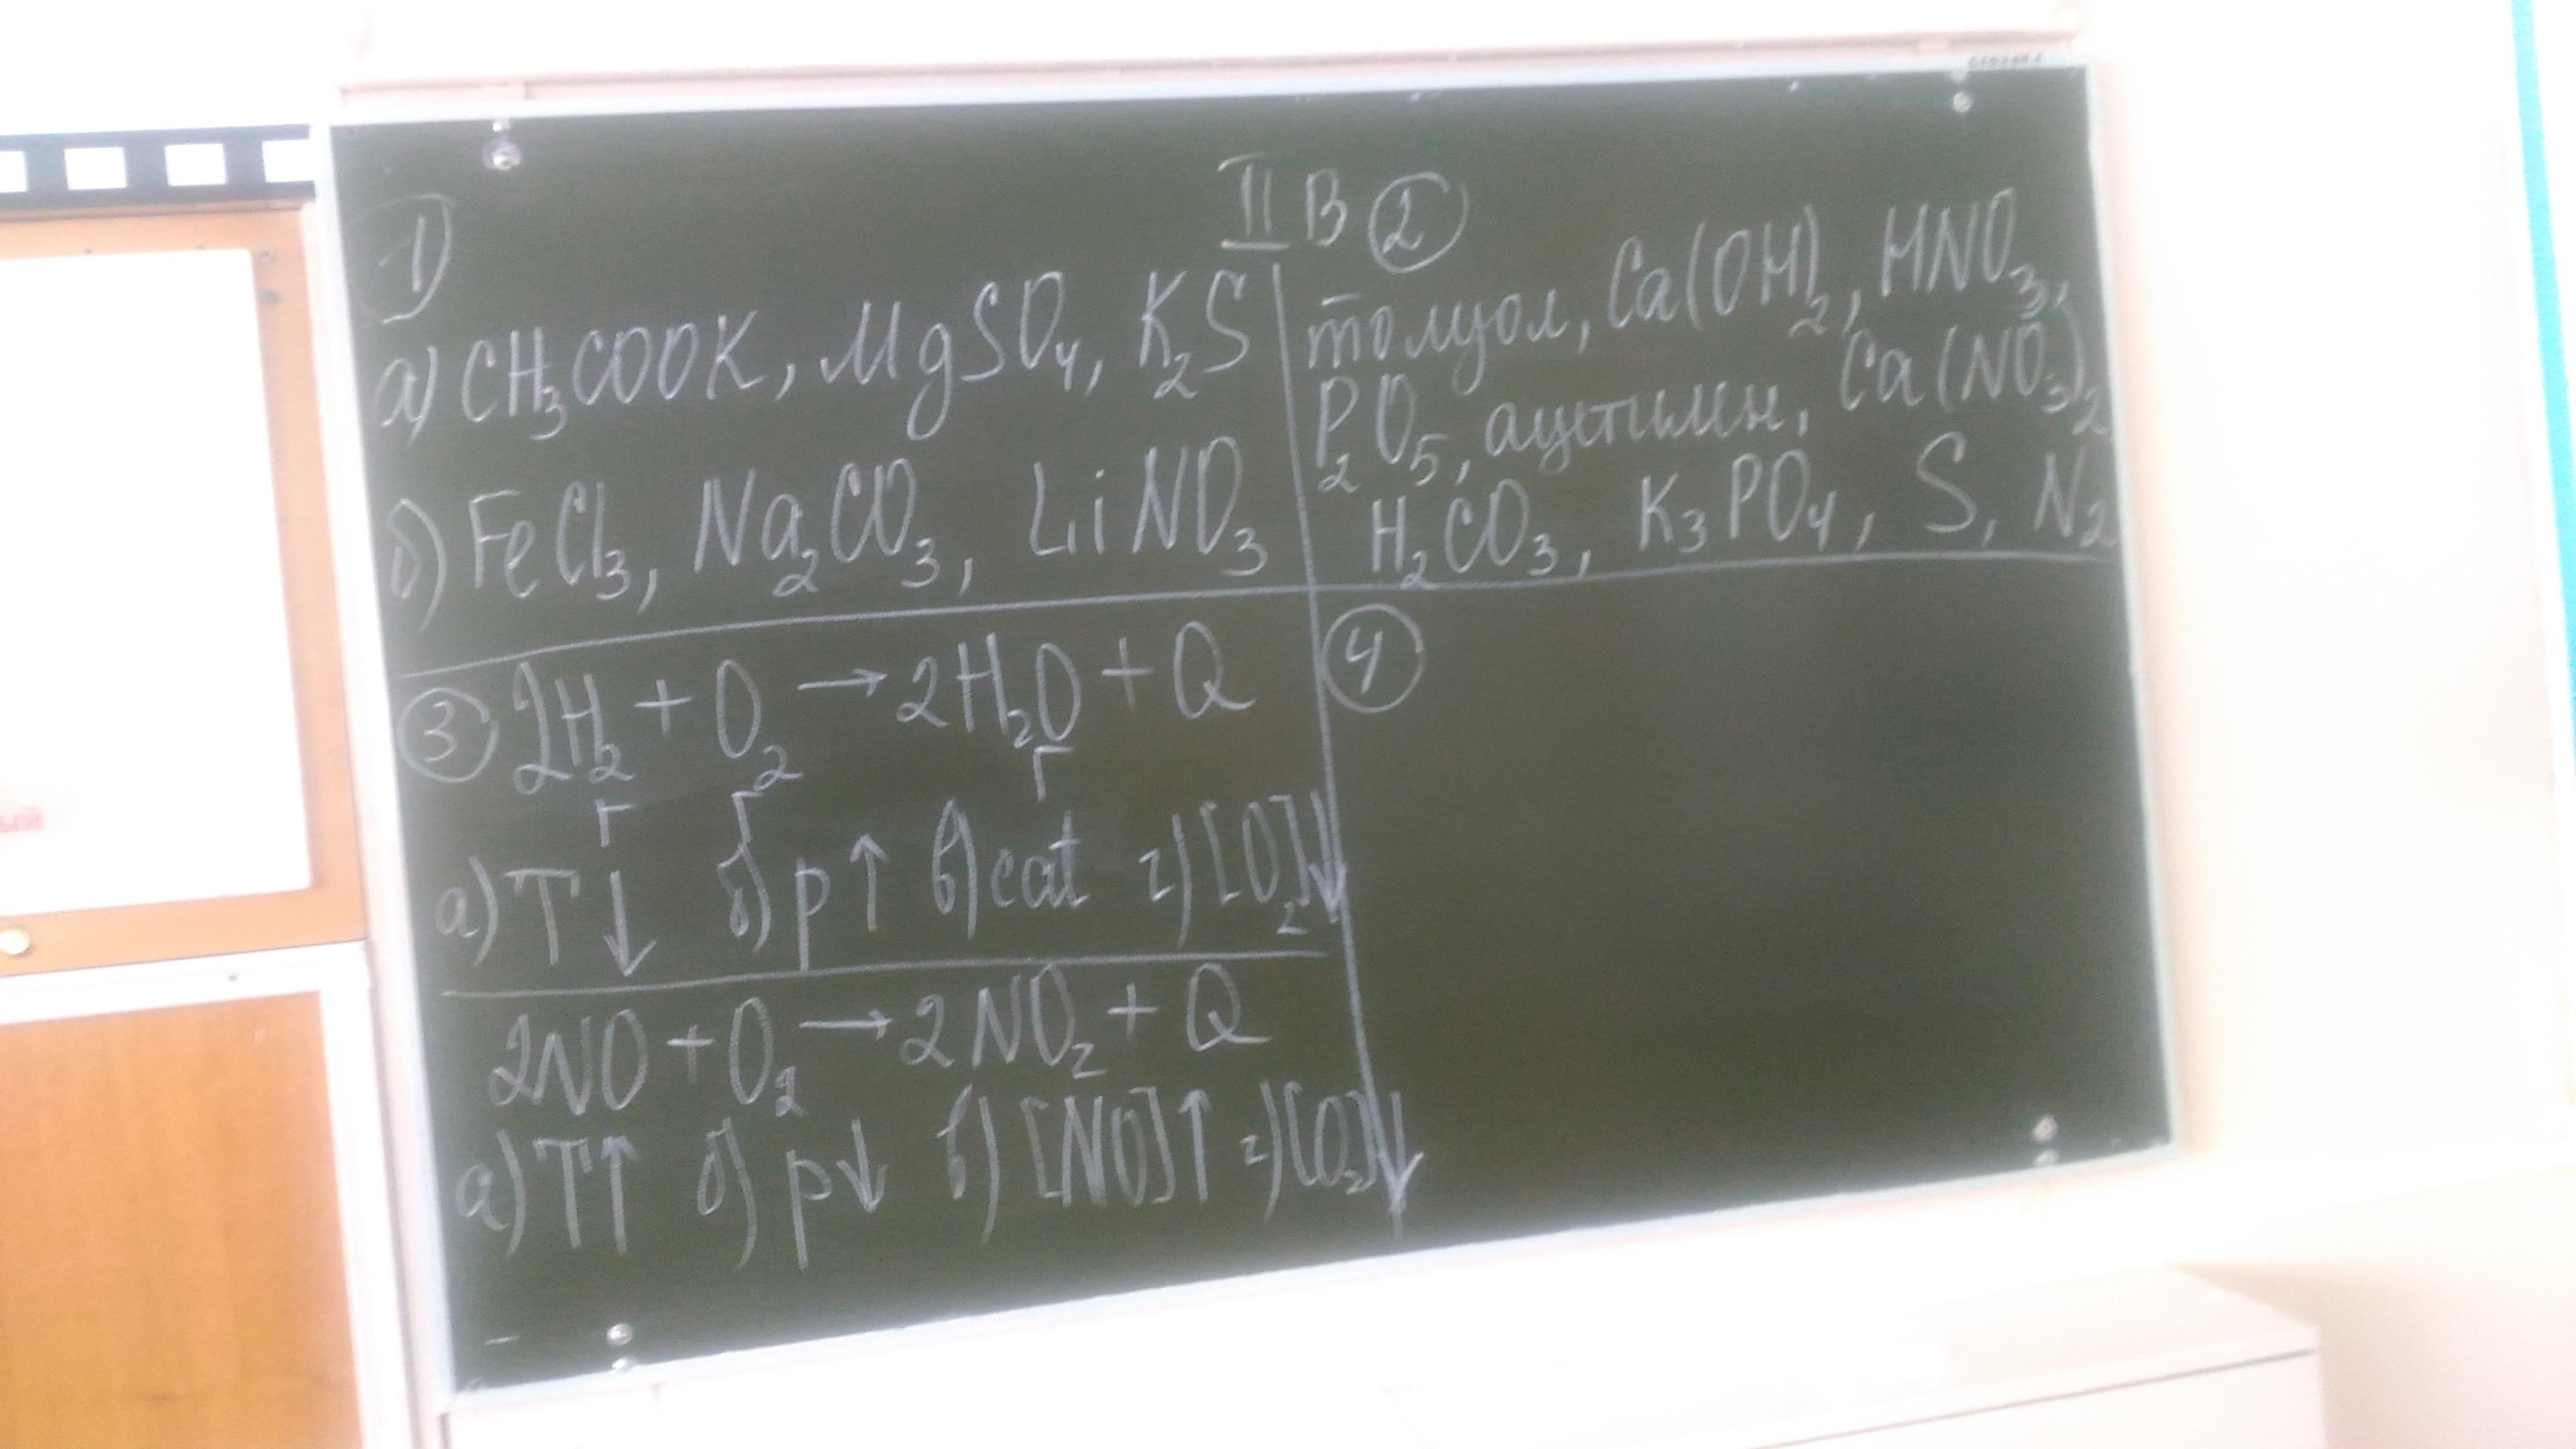 II В
①
а) CH₃COOK, MgSO₄, K₂S
б) FeCl₃, Na₂CO₃, LiNO₃
②
толуол, Ca(OH)₂, HNO₃,
P₂O₅, ацетилен, Ca(NO₃)₂
H₂CO₃, K₃PO₄, S, N₂
③ 2H₂ + O₂ → 2H₂O + Q
г г г
а) T↓ б) p↑ в) cat г) [O₂]↓
2NO + O₂ → 2NO₂ + Q
а) T↑ б) p↓ в) [NO]↑ г) [O₂]↓
④